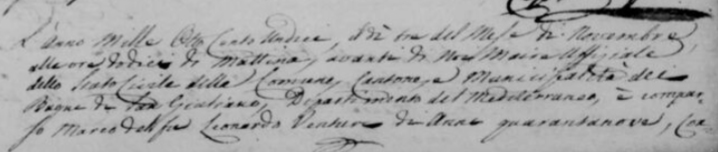 L'Anno Mille Otto Cento Undici, il dì tre del Mese di Novembre,
alle ore dodici di Mattina, avanti di Noi Maire Uffiziale
dello Stato Civile della Comune, Cantone, e Municipalità dei
Bagni di San Giuliano, Dipartimento del Mediterraneo, è compar-
so Marco del fu Leonardo Venturi di Anni quarantanove,